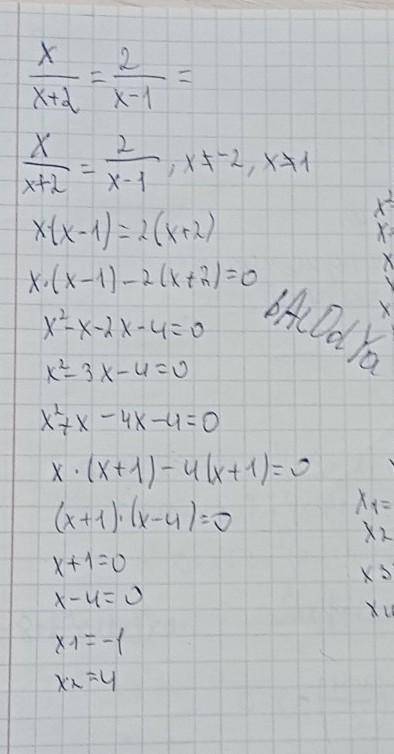 x/(x+2) = 2/(x-1) =
x/(x+2) = 2/(x-1), x≠-2, x≠1
x·(x-1)=2(x+2)
x·(x-1)-2(x+2)=0
x²-x-2x-4=0
x²-3x-4=0
x²+x-4x-4=0
x·(x+1)-4(x+1)=0
(x+1)·(x-4)=0
x+1=0
x-4=0
x1=-1
x2=4
x1=
x2